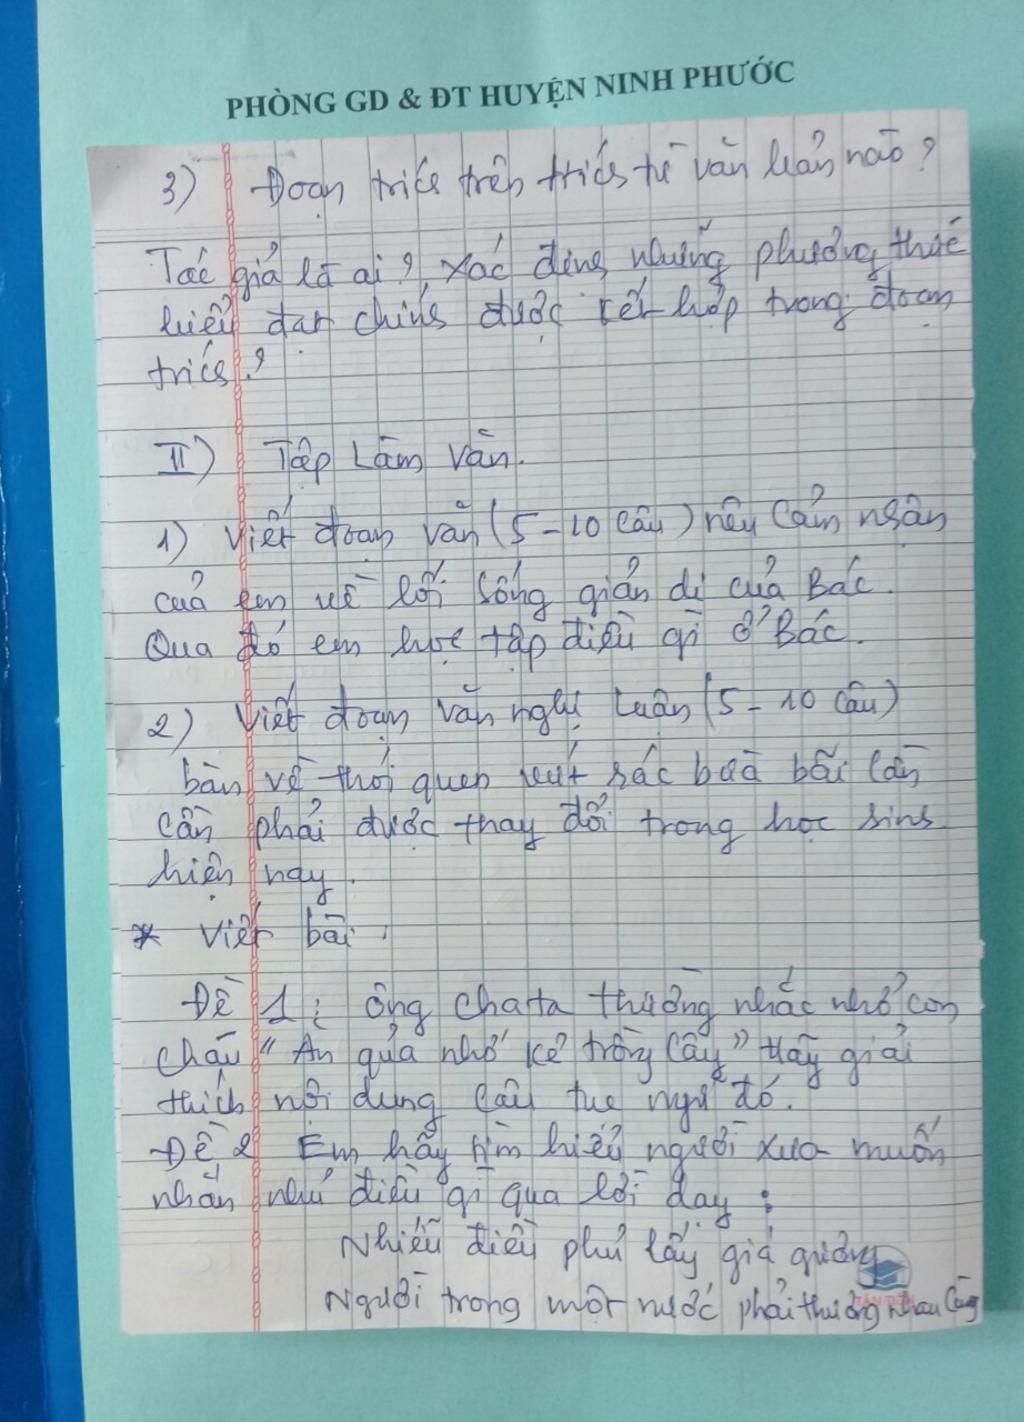 PHÒNG GD & ĐT HUYỆN NINH PHƯỚC
3) Đoạn trích trên trích từ văn bản nào?
Tác giả là ai? Xác định những phương thức
biểu đạt chính được kết hợp trong đoạn
trích?
II) Tập Làm Văn.
1) Viết đoạn văn (5-10 câu) nêu cảm nhận
của em về lối sống giản dị của Bác.
Qua đó em học tập điều gì ở Bác.
2) Viết đoạn văn nghị luận (5-10 câu)
bàn về thói quen vứt rác bừa bãi cần
cần phải được thay đổi trong học sinh
hiện nay.
* Viết bài.
Đề 1: Ông cha ta thường nhắc nhở con
cháu "Ăn quả nhớ kẻ trồng cây" Hãy giải
thích nội dung câu tục ngữ đó.
Đề 2 Em hãy tìm hiểu người xưa muốn
nhắn nhủ điều gì qua lời dạy:
Nhiễu điều phủ lấy giá gương
Người trong một nước phải thương nhau cùng